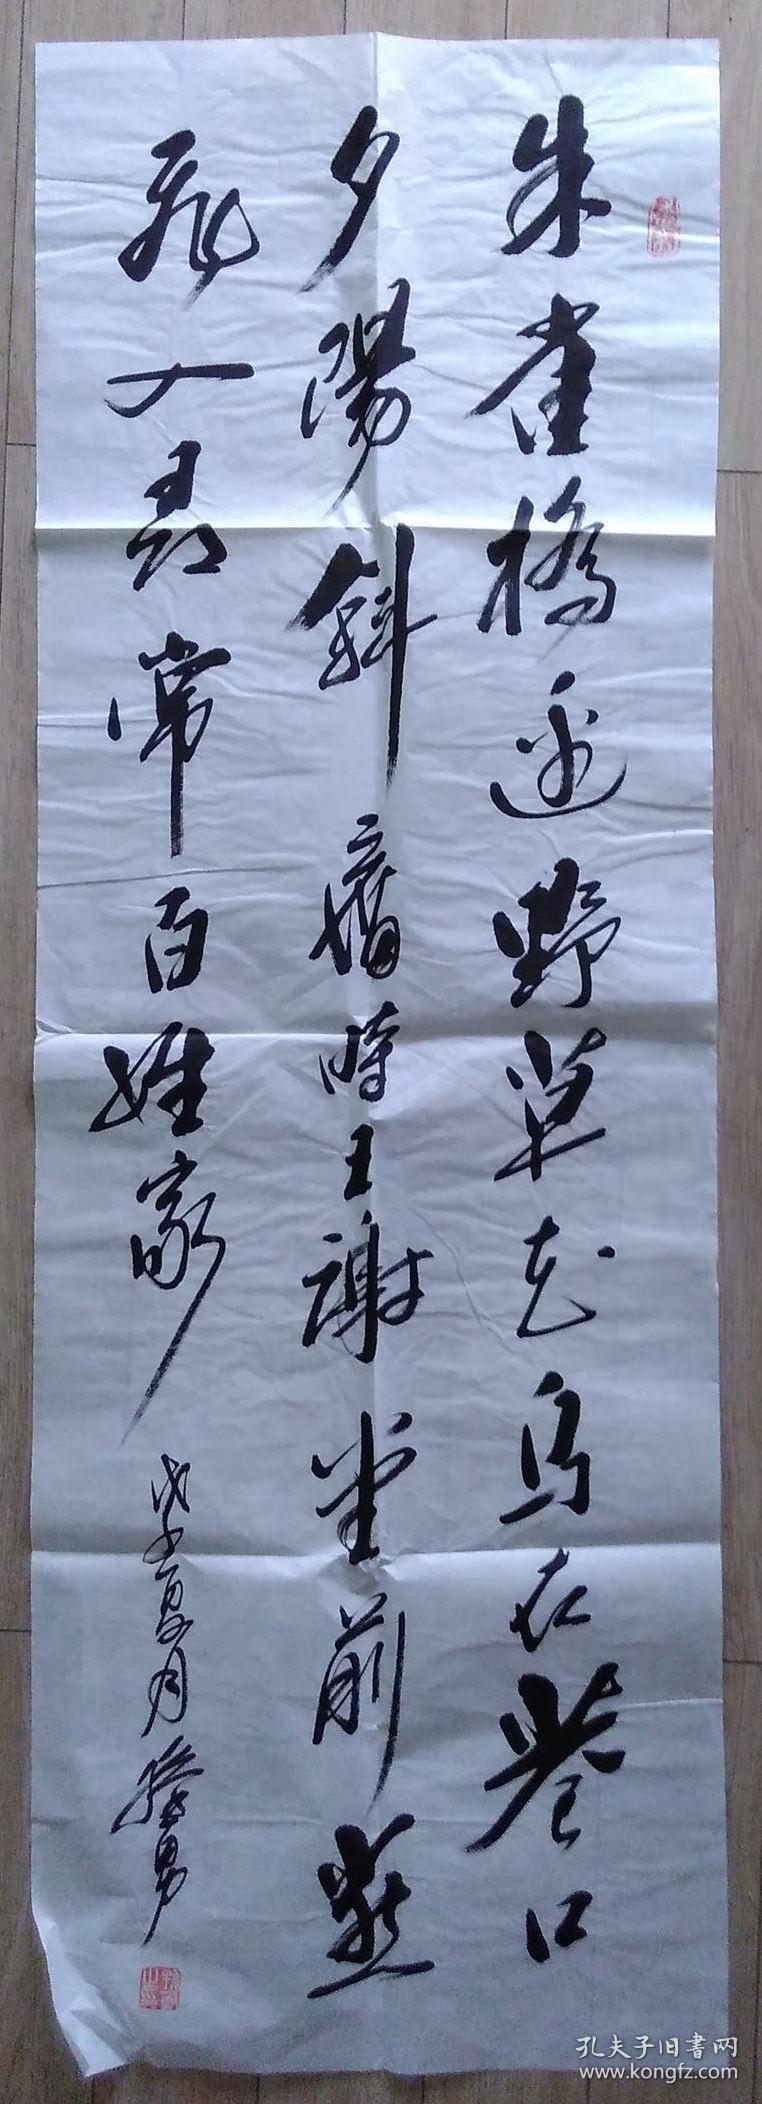 朱雀橋边野草花乌衣巷口
夕陽斜舊時王謝堂前燕
飛入尋常百姓家
戊子夏月勝男
孔夫子旧書网
www.kongfz.com